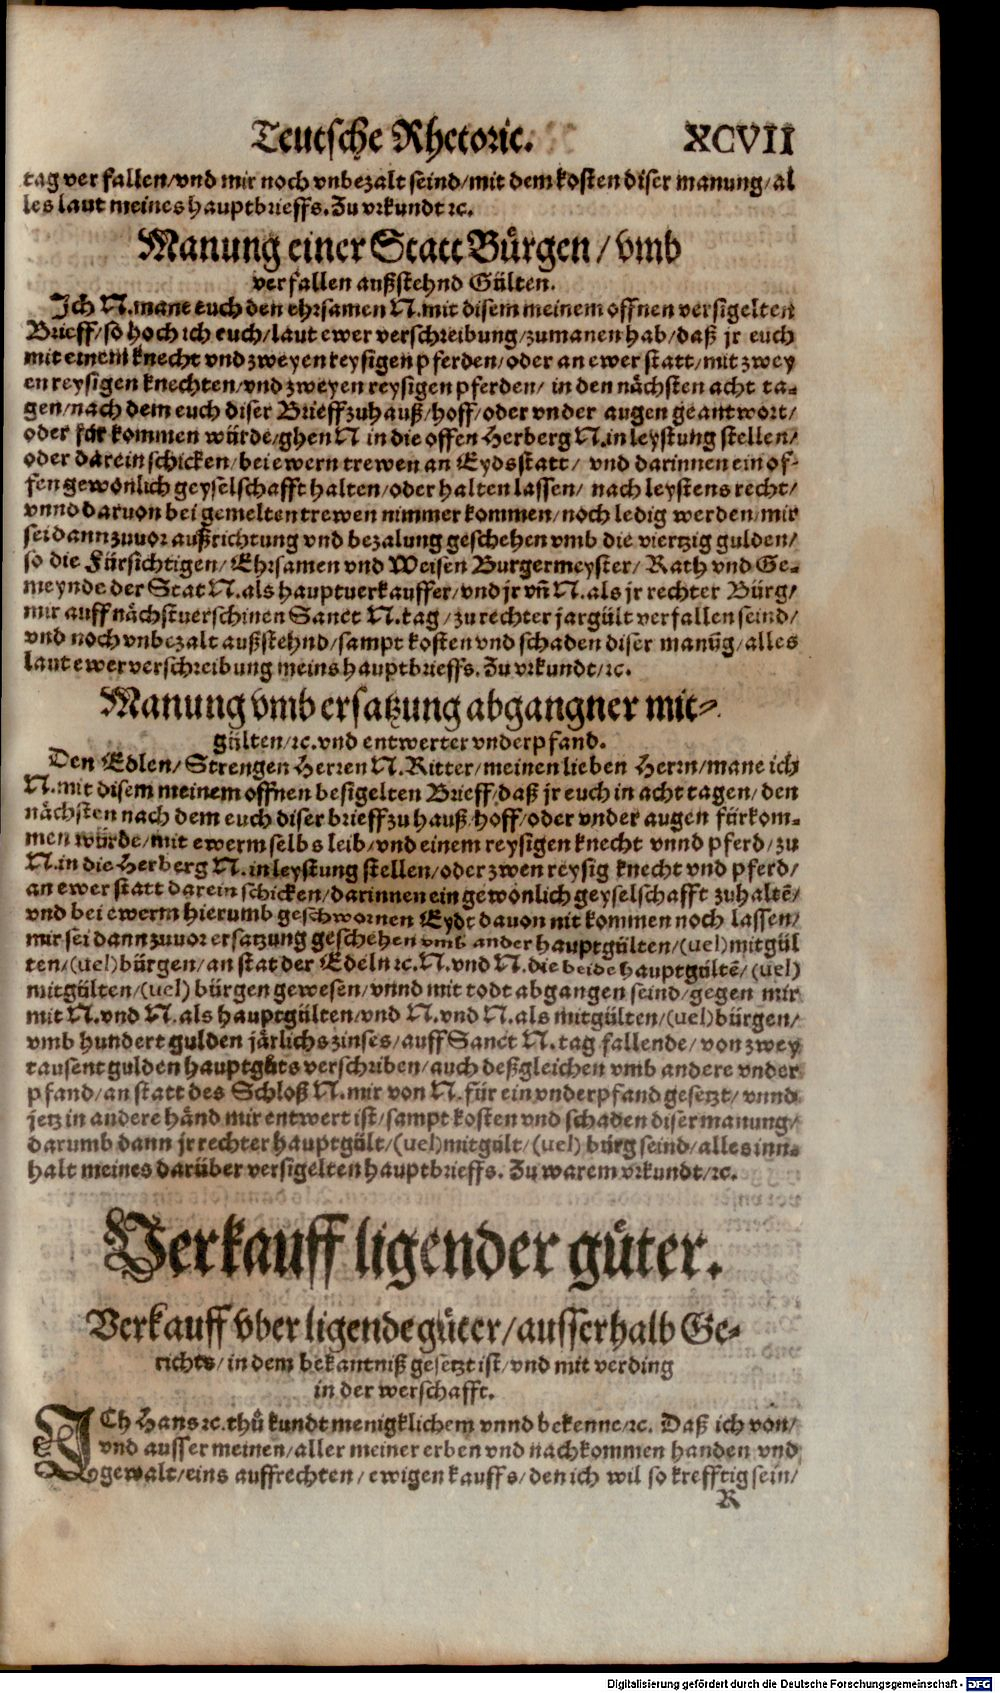 Teutsche Rhetoric. XCVII
tag verfallen/vnd mir noch vnbezalt seind/mit dem kosten diser manung/al
les laut meines hauptbrieffs. Zu vrkundt ꝛc.
Manung einer Statt Bürgen/vmb
verfallen außstehnd Gülten.
Ich N. mane euch den ehrsamen N. mit disem meinem offnen versigelten
Brieff/so hoch ich euch/laut ewer verschreibung/zumanen hab/daß jr euch
mit einem knecht vnd zweyen reysigen pferden/oder an ewer statt/mit zwey
en reysigen knechten/vnd zweyen reysigen pferden/in den nächsten acht ta-
gen/nach dem euch diser Brieff zuhauß/hoff/oder vnder augen geantwort/
oder für kommen würde/ghen N in die offen Herberg N. in leystung stellen/
oder darein schicken/bei ewern trewen an Eydsstatt/vnd darinnen ein of-
fen gewönlich geyselschafft halten/oder halten lassen/nach leystens recht/
vnnd daruon bei gemelten trewen nimmer kommen/noch ledig werden/mir
sei dann zuuor außrichtung vnd bezalung geschehen vmb die viertzig gulden/
so die Fürsichtigen/Ehrsamen vnd Weisen Burgermeyster/Rath vnd Ge-
meynde der Stat N. als hauptuerkauffer/vnd jr vñ N. als jr rechter Bürg/
mir auff nächstuerschinen Sanct N. tag/zu rechter jargült verfallen seind/
vnd noch vnbezalt außstehnd/sampt kosten vnd schaden diser manũg/alles
laut ewer verschreibung meins hauptbrieffs. Zu vrkundt/ꝛc.
Manung vmb ersatzung abgangner mit-
gülten/ꝛc. vnd entwerter vnderpfand.
Den Edlen/Strengen Herren N. Ritter/meinen lieben Herrn/mane ich
N. mit disem meinem offnen besigelten Brieff/daß jr euch in acht tagen/den
nächsten nach dem euch diser brieff zu hauß/hoff/oder vnder augen fürkom-
men würde/mit ewerm selbs leib/vnd einem reysigen knecht vnnd pferd/zu
N. in die Herberg N. in leystung stellen/oder zwen reysig knecht vnd pferd/
an ewer statt darein schicken/darinnen ein gewönlich geyselschafft zuhaltẽ/
vnd bei ewerm hierumb geschwornen Eydt dauon nit kommen noch lassen/
mir sei dann zuuor ersatzung geschehen vmb ander hauptgülten/(uel)mitgül
ten/(uel)bürgen/an stat der Edeln ꝛc. N. vnd N. die beide hauptgültẽ/(uel)
mitgülten/(uel) bürgen gewesen/vnnd mit todt abgangen seind/gegen mir
mit N. vnd N. als hauptgülten/vnd N. vnd N. als mitgülten/(uel)bürgen/
vmb hundert gulden järlichs zinses/auff Sanct N. tag fallende/von zwey
tausent gulden hauptgůts verschriben/auch deßgleichen vmb andere vnder
pfand/an statt des Schloß N. mir von N. für ein vnderpfand gesetzt/vnnd
jetz in andere händ mir entwert ist/sampt kosten vnd schaden diser manung/
darumb dann jr rechter hauptgült/(uel)mitgült/(uel) bürg seind/alles inn-
halt meines darüber versigelten hauptbrieffs. Zu warem vrkundt/ꝛc.
Verkauff ligender güter.
Verkauff vber ligende güter/ausserhalb Ge-
richts/in dem bekantniß gesetzt ist/vnd mit verding
in der werschafft.
ICh Hans ꝛc. thů kundt menigklichem vnnd bekenne/ꝛc. Daß ich von/
vnd ausser meinen/aller meiner erben vnd nachkommen handen vnd
gewalt/eins auffrechten/ewigen kauffs/den ich wil so krefftig sein/
R
Digitalisierung gefördert durch die Deutsche Forschungsgemeinschaft - DFG